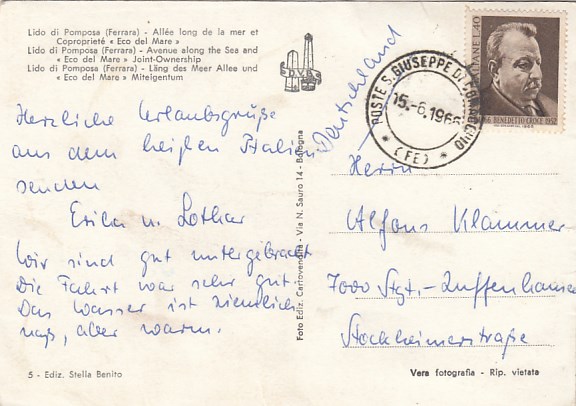 Lido di Pomposa (Ferrara) - Allée long de la mer et
Coproprieté « Eco del Mare »
Lido di Pomposa (Ferrara) - Avenue along the Sea and
« Eco del Mare » Joint-Ownership
Lido di Pomposa (Ferrara) - Läng des Meer Allee und
« Eco del Mare » Miteigentum
D.V.B.
Herzliche Urlaubsgrüße
aus dem heißen Italien
senden
Erika u. Lothar
Wir sind gut untergebracht
Die Fahrt war sehr gut.
Das Wasser ist ziemlich
naß, aber warm.
5 - Ediz. Stella Benito
Foto Ediz. Cartovendita - Via N. Sauro 14 - Bologna
Deutschland
POSTE S. GIUSEPPE DI
15.-6.1966
(FE)
L.40
BENEDETTO CROCE 1952
Herrn
Alfons Klammer
7000 Stgt.-Zuffenhausen
Stockheimerstraße
Vera fotografia - Rip. vietata